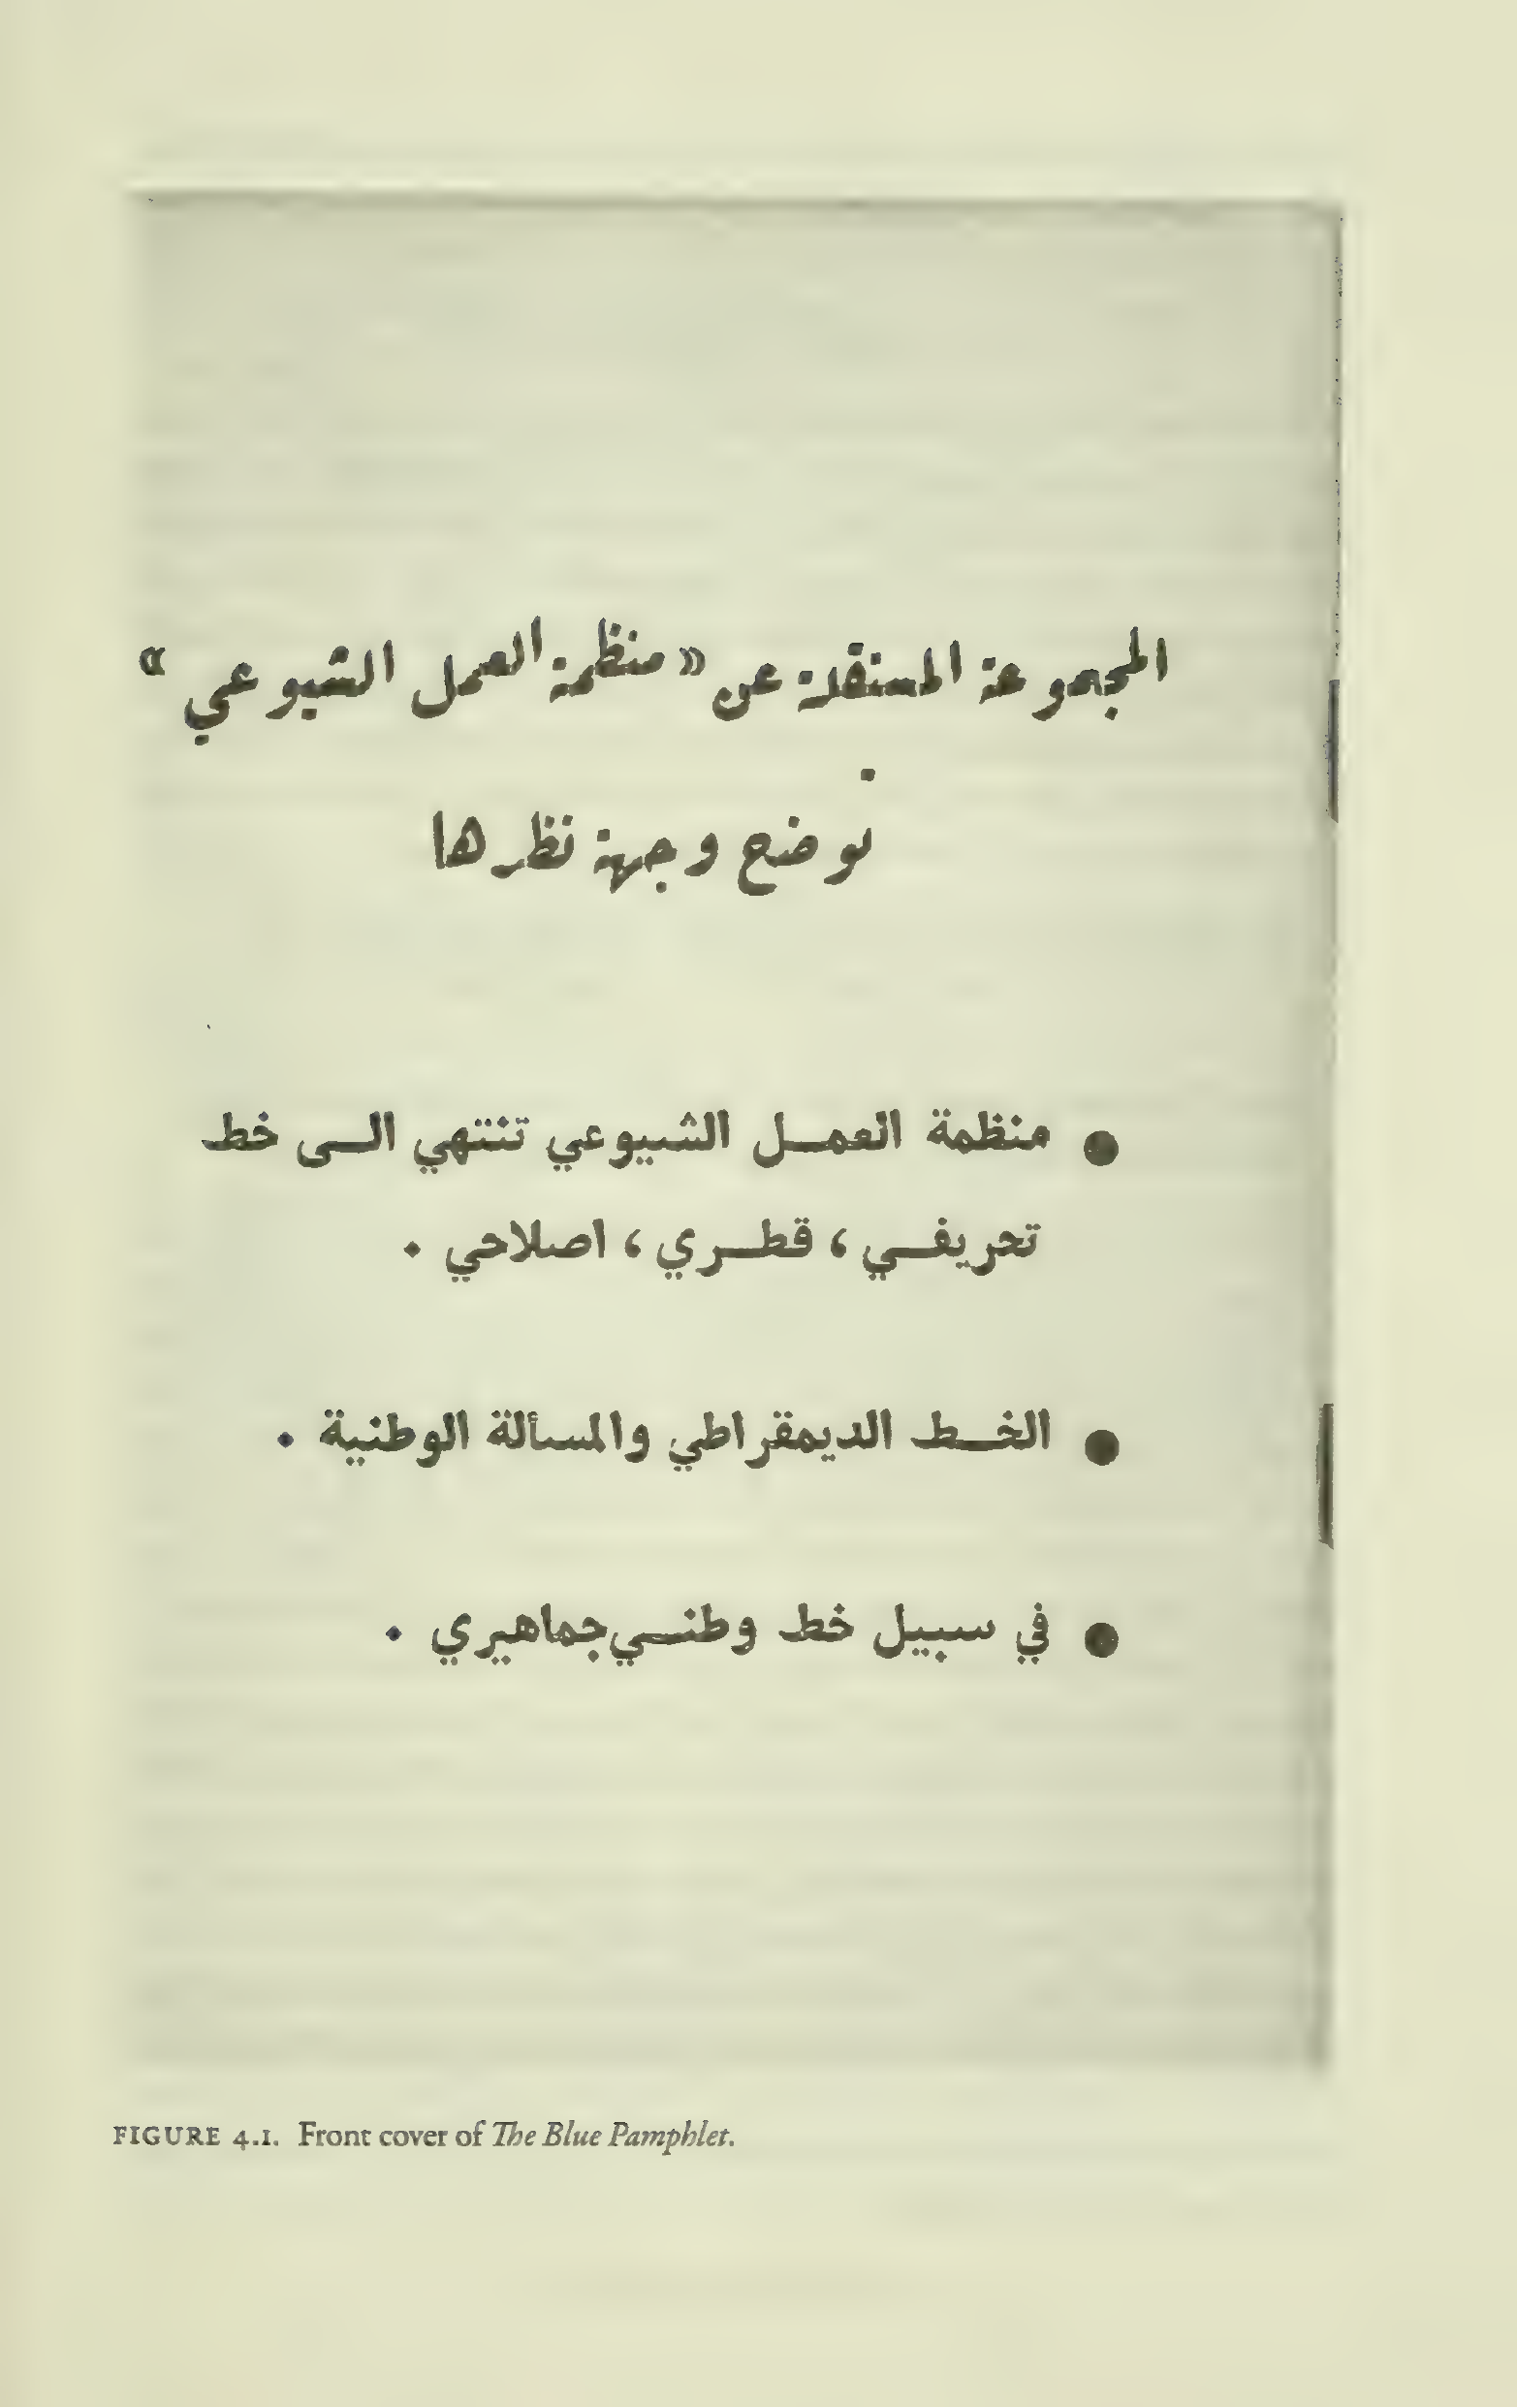 المجموعة المستقلة عن «منظمة العمل الشيوعي»
توضح وجهة نظرها
● منظمة العمـل الشيوعي تنتهي الـى خط
تحريفـي ، قطـري ، اصلاحي .
● الخـط الديمقراطي والمسألة الوطنية .
● في سبيل خط وطنـي جماهيري .
FIGURE 4.1. Front cover of The Blue Pamphlet.